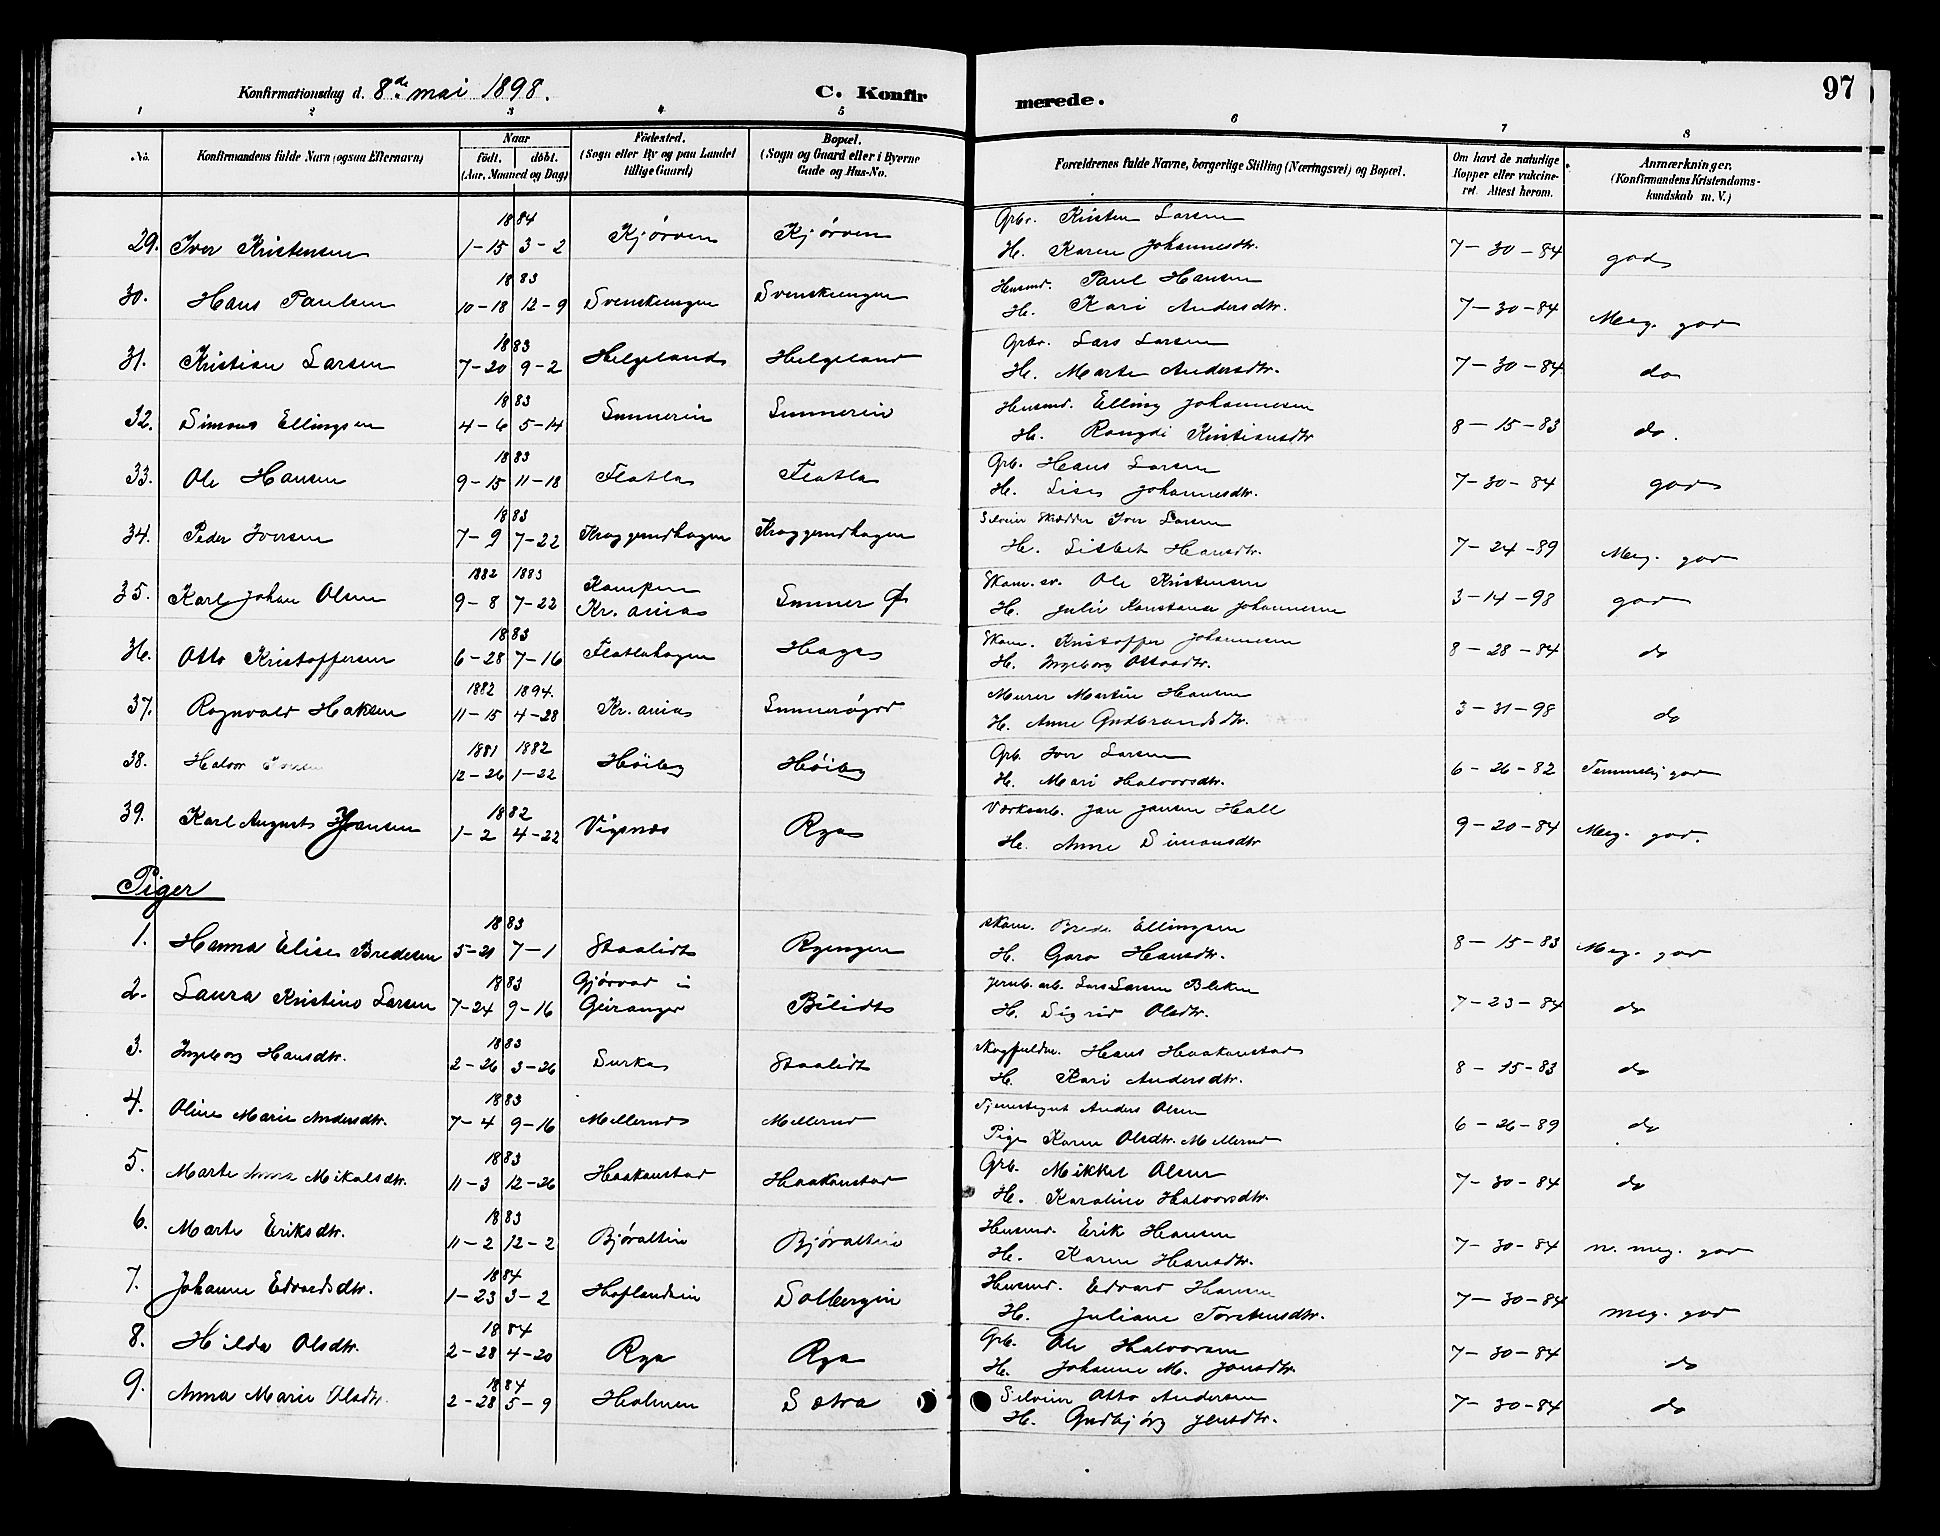 97
Konfirmationsdag d. 8de mai 1898. C. Konfirmerede.
1 2 3 4 5 6 7 8
No. Konfirmandens fulde Navn (ogsaa Efternavn) Naar födt. döbt. (Aar, Maaned og Dag) Födested. (Sogn eller By og paa Landet tillige Gaard) Bopæl. (Sogn og Gaard eller i Byerne Gade og Hus-No. Forældrenes fulde Navne, borgerlige Stilling (Næringsvei) og Bopæl. Om havt de naturlige Kopper eller vakcineret. Attest herom. Anmærkninger. (Konfirmandens Kristendomskundskab m. V.)
1884 Grbr. Kristen Larsen
29. Iver Kristensen 1-15 3-2 Kjörven Kjörven H. Karen Johannesdtr. 7-30-84 god
1883 Husmd. Paul Hansen
30. Hans Paulsen 10-18 12-9 Svenskeengen Svenskeengen H. Kari Andersdtr. 7-30-84 Meg. god
1883 Grbr. Lars Larsen
31. Kristian Larsen 7-20 9-2 Helgeland Helgeland H. Marte Andersdtr. 7-30-84 do
1883 Husmd. Elling Johannesen
32. Simon Ellingsen 4-6 5-14 Sunnerin Sunnerin H. Rangdi Kristiansdtr 8-15-83 do.
1883 Grb. Hans Larsen
33. Ole Hansen 9-15 11-18 Flatla Flatla H. Lise Johannesdtr. 7-30-84 god
1883 Selveier Skrædder Iver Larsen
34. Peder Iversen 7-9 7-22 Kraggerudhagen Kraggerudhagen H. Lisbet Hansdtr. 7-24-89 Meg. god
1882 1883 Skom. sv. Ole Kristensen
35. Karl Johan Olsen 9-8 7-22 Kampen Kr. ania Sunner Ö H. Julie Konstanse Johannesen 3-14-98 god
1883 Skom. Kristoffer Johannesen
36. Otto Kristoffersen 6-28 7-16 Flatlahagen Haga H. Ingeborg Ottosdtr. 8-28-84 do
1882 1894. Murer Martin Hansen
37. Ragnvald Hansen 11-15 4-28 Kr. ania H. Anne Gudbrandsdtr. 3-31-98 do
1881 1882 Grb. Iver Larsen
38. Halvor 12-26 1-22 Höiby Höiby H. Mari Halvorsdtr. 6-26-82 Temmelig god
1882 Værksarb. Jan Jansen Hall
39. Karl August Jansen 1-2 4-22 Vigsnæs Rya H. Anne Simonsdtr 9-20-84 Meg. god.
Piger
1883 skom. Brede Ellingsen
1. Hanna Elise Bredesen 5-21 7-1 Staalidt Ryengen H. Goro Hansdtr. 8-15-83 Meg. god
1883 Gjörvad i Jernb. arb. Lars Larsen Bleken
2. Laura Kristine Larsen 7-24 9-16 Geiranger Bilidt H. Sigrid Olsdtr. 7-23-84 do
1883 Skogfuldm. Hans Haakonstad
3. Ingeborg Hansdtr. 2-26 3-26 Surka Staalidt H. Kari Andersdtr. 8-15-83 do
1883 Tjenestegut Anders Olsen
4. Oline Marie Andersdtr. 7-4 9-16 Mellerud Mellerud Pige Karen Olsdtr. Mellerud 6-26-89 do
1883 Grb. Mikkel Olsen
5. Marte Anna Mikalsdtr. 11-3 12-26 Haakonstad Haakonstad H. Karoline Halvorsdtr. 7-30-84 do
1883 Husmd. Erik Hansen
6. Marte Eriksdtr. 11-2 12-2 Björaltin Björaltin H. Karen Hansdtr. 7-30-84 n. meg. god
1884 Husmd. Edvard Hansen
7. Johanne Edvardsdtr. 1-23 3-2 Haflandsin Solbergin H. Juliane Torstensdtr. 7-30-84 meg. god
1884 Grb. Ole Halvorsen
8. Hilda Olsdtr. 2-28 4-20 Rya Rya H. Johanne M. Jonsdtr. 7-30-84 do
1884 Selveier Otto Andersen
9. Anna Marie Olsdtr. 2-28 5-9 Holmen Sætra H. Gudbjörg Jensdtr. 7-30-84 do